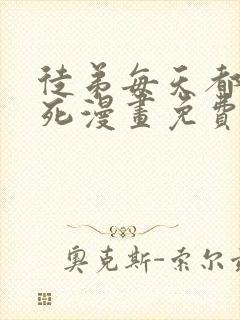 徒弟每天都
死漫畫免費
奥克斯-索尔